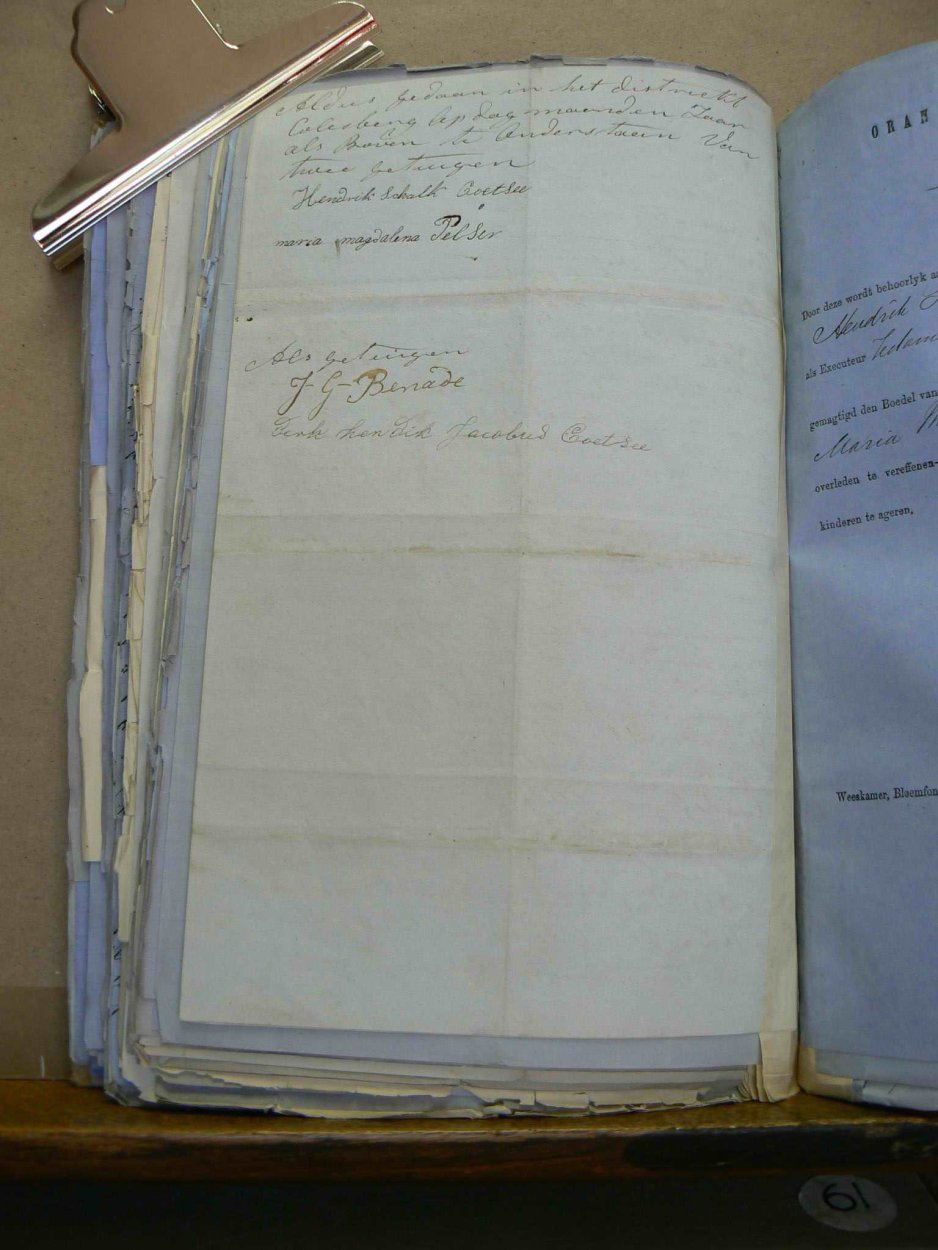 Aldus gedaan in het districkt
Colesberg op dag maanden Jaar
als Boven te Anderstaan Van
twee getuigen
Hendrik Schalk Coetsee
maria magdalena Pelser
Als getuigen
J G Benade
Derk hendik Jacobus Coetsee
ORAN
Door deze wordt behoorlyk a
Hendrik
als Executeur
gemagtigd den Boedel van
Maria
overleden te vereffenen
kinderen te ageren,
Weeskamer, Bloemfon
61